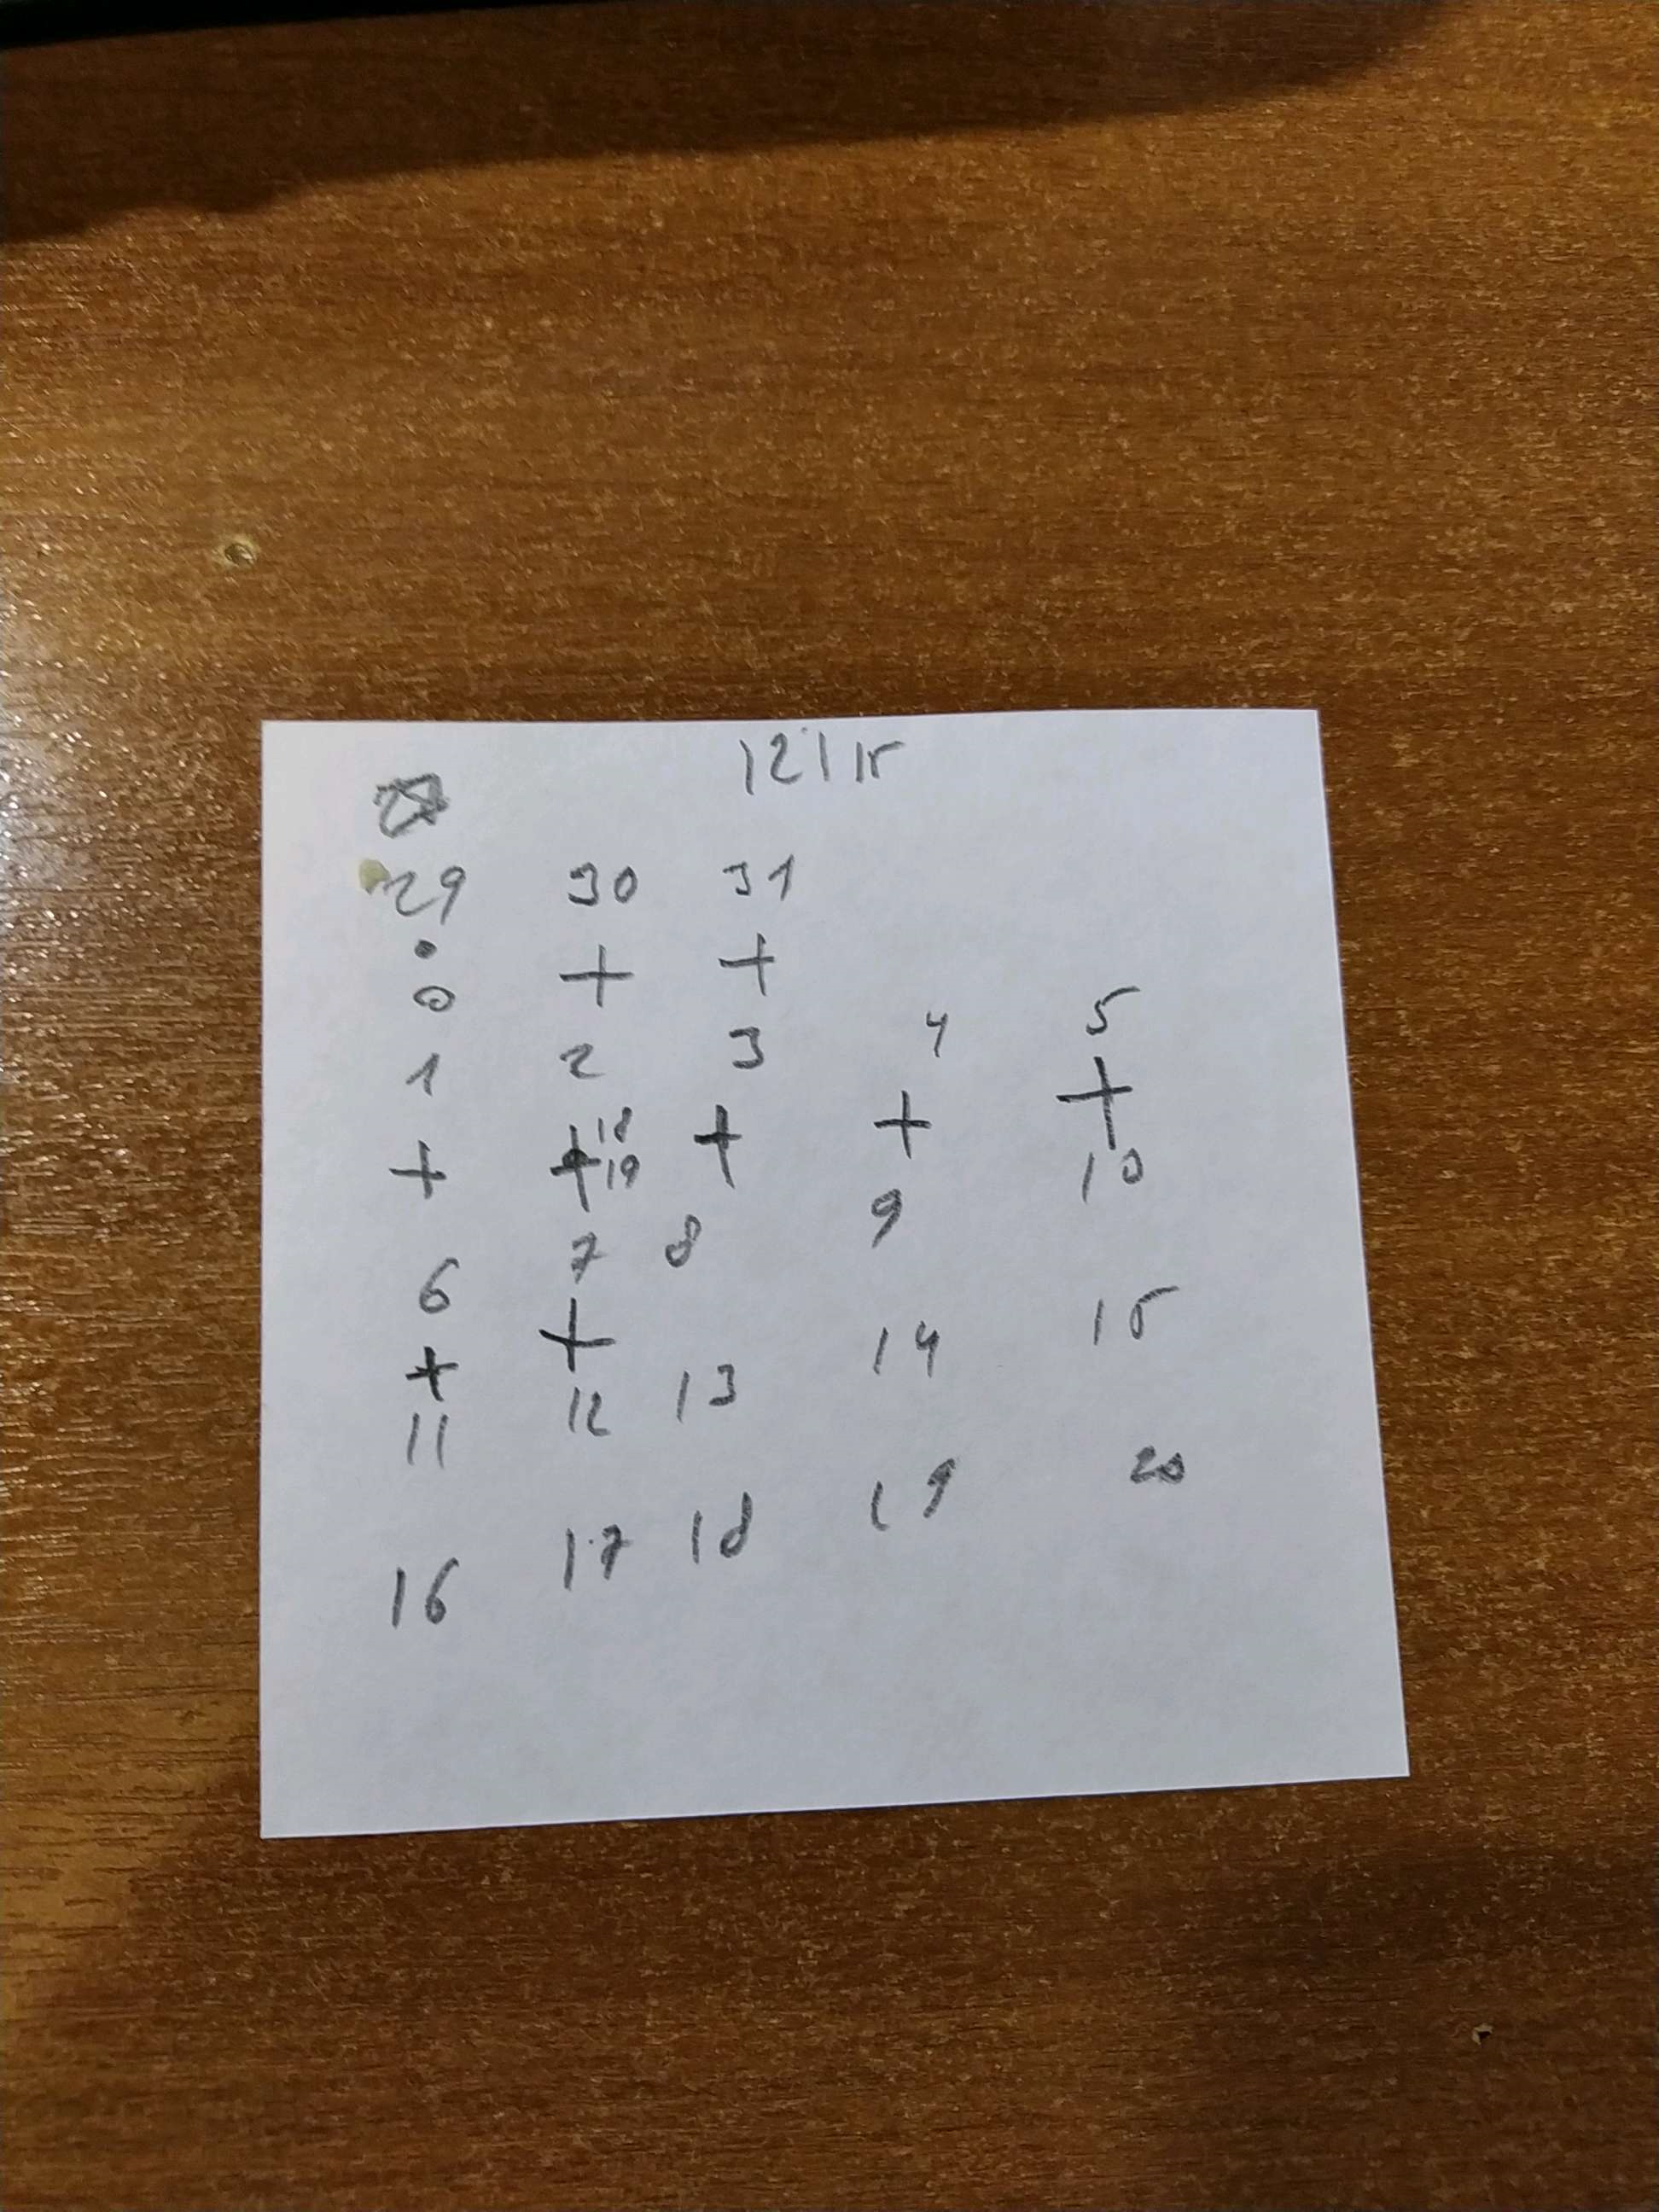 12 | 15
29 30 31
• + +
o
1 2 3 4 5
+ + 18 19 + + +
6 7 8 9 10
+ +
11 12 13 14 15
16 17 18 19 20